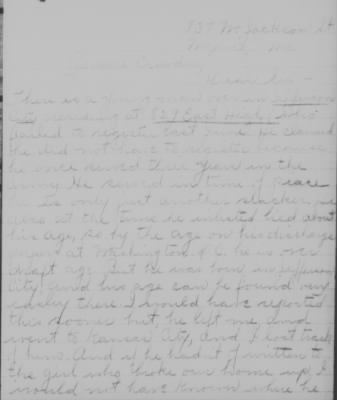 137 W. Jackson St
Mo
Dear Sir -
There is a young man over in Jefferson
City residing at 827 East High, who
failed to register last June. He claimed
he did not have to register because
he once served three years in the
army. He served in time of peace
he is only just another slacker, he
also at the time he enlisted lied about
his age, so by the age on his discharge
at Washington, D.C. he is over
draft age. But he was born in Jefferson
City and his age can be found very
easily there. I would have reported
this sooner but, he left me and
went to Kansas City, and I lost track
of him. And if he hadn't of written to
the girl who broke our home up, I
would not have known where he